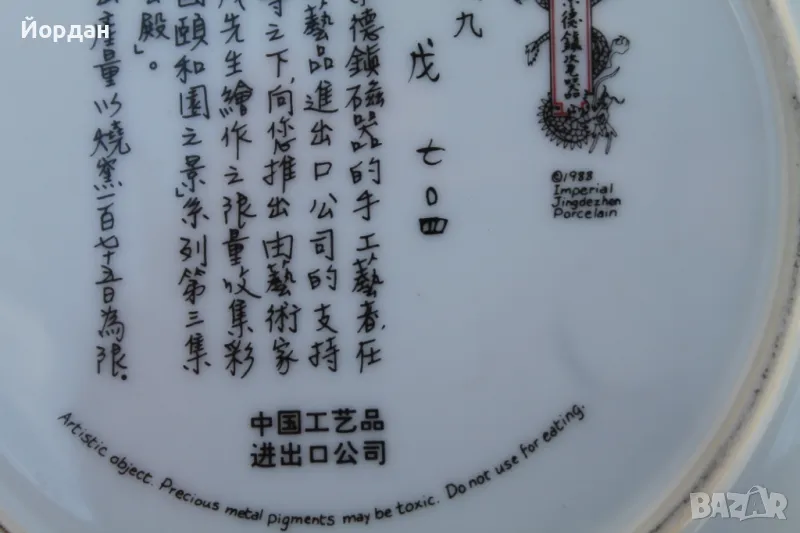 Йордан
景德鎮瓷器
©1988
Imperial
Jingdezhen
Porcelain
九
戊
七〇四
德鎮磁器的手工藝者，在
藝品進出口公司的支持
之下，向您推出由藝術家
先生繪作之限量收集彩
頤和園之景」系列第三集
殿」。
產量以燒窯一百七十五日為限。
中国工艺品
进出口公司
Artistic object. Precious metal pigments may be toxic. Do not use for eating.
BAZAR